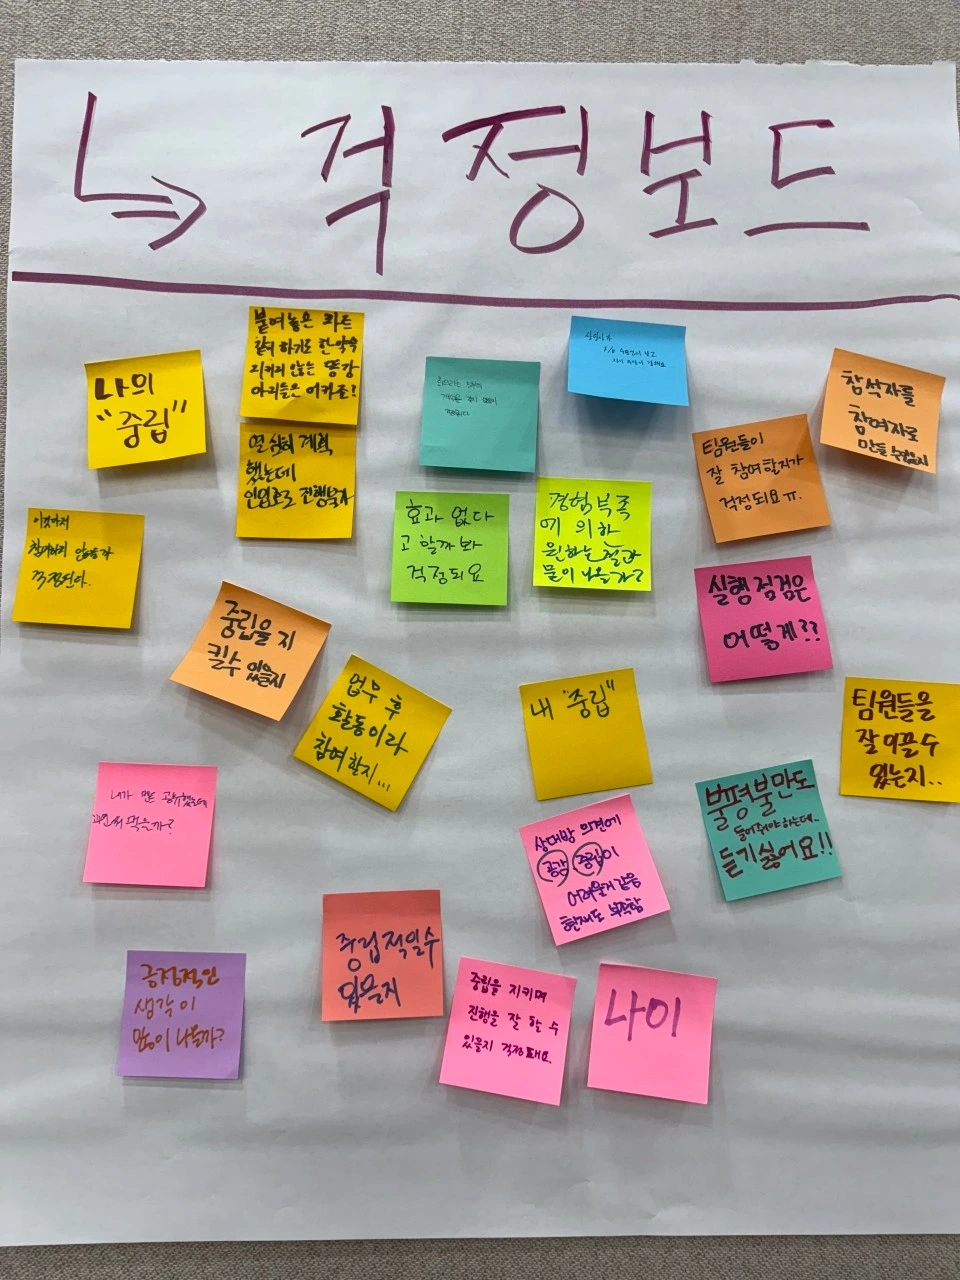 걱정보드
붙여놓은 차트
같이 하기로 한 약속
지키지 않는 똥강
아리들은 어카죠!
나의
"중립"
참석자를
참여자로
만들 수 있을지
팀원들이
잘 참여할지가
걱정되요 ㅠ.
열심히 계획
했는데
인업로드 진행부자
효과 없다
고 할까봐
걱정되요
경험부족
에 의하
원하는 결과
물이 나올까?
걱정된다.
실행점검은
어떻게??
중립을 지
킬수 있을지
업무 후
활동이라
참여할지...
내 "중립"
팀원들을
잘 이끌 수
있는지..
내가 멘트 공유했는데
과연 써 먹을까?
불평불만도
들어줘야 하는데..
듣기싫어요!!
상대방 의견에
공감 중립이
어려울거 같음
현재도 부족함
중립적일수
있을지
긍정적인
생각이
많이 나올까?
중립을 지키며
진행을 잘 할 수
있을지 걱정돼요.
나이